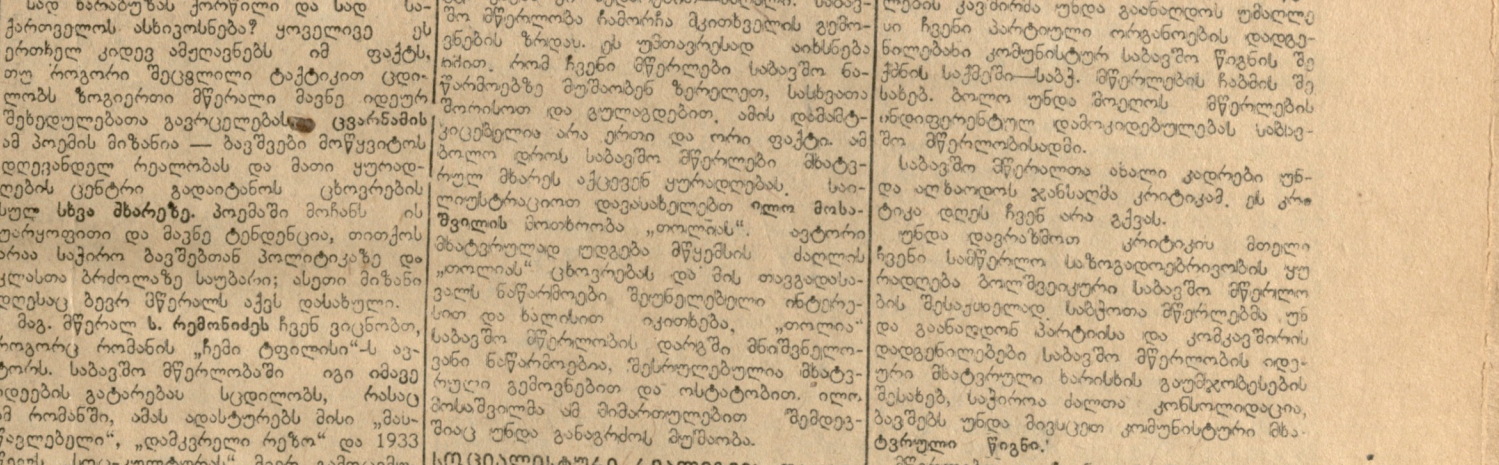 სად ხარაბუზას ქორწილი და სად სა-
ქართველოს ასხივოსნება? ყოველივე ეს
ერთხელ კიდევ ამჟღავნებს იმ ფაქტს,
თუ როგორი შეცვლილი ტაქტიკით ცდი-
ლობს ზოგიერთი მწერალი მავნე იდეურ
შეხედულებათა გავრცელებას ცვარნამის
ამ პოემის მიზანია — ბავშვები მოწყვიტოს
დღევანდელ რეალობას და მათი ყურად-
ღების ცენტრი გადაიტანოს ცხოვრების
სულ სხვა მხარეზე. პოემაში მოჩანს ის
უარყოფითი და მავნე ტენდენცია, თითქოს
არაა საჭირო ბავშებთან პოლიტიკაზე და
კლასთა ბრძოლაზე საუბარი; ასეთი მიზანი
დღესაც ბევრ მწერალს აქვს დასახული.
მაგ. მწერალ ს. რემონიძეს ჩვენ ვიცნობთ,
როგორც რომანის „ჩემი ტფილისი“-ს ავ-
ტორს. საბავშო მწერლობაში იგი იმავე
იდეების გატარებას სცდილობს, რასაც
ამ რომანში, ამას ადასტურებს მისი „მას-
წავლებელი“, „დამკვრელი რეზო“ და 1933
შო მწერლობა ჩამორჩა მკითხველის გემო-
ვნების ზრდას. ეს უმთავრესად აიხსნება
იმით, რომ ჩვენი მწერლები საბავშო ნა-
წარმოებზე მუშაობენ ზერელეთ, სასხვათა
შორისოთ და გულაგდებით. ამის დამამტ-
კიცებელია არა ერთი და ორი ფაქტი. ამ
ბოლო დროს საბავშო მწერლები მხატვ-
რულ მხარეს აქცევენ ყურადღებას. საი-
ლიუსტრაციოთ დავასახელებთ ილო მოსა-
შვილის მოთხრობა „თოლიას“. ავტორი
მხატვრულად უდგება მწყემსის ძაღლის
„თოლიას“ ცხოვრებას და მის თავგადასა-
ვალს ნაწარმოები შეუნელებელი ინტერე-
სით და ხალისით იკითხება, „თოლია“
საბავშო მწერლობის დარგში მნიშვნელო-
ვანი ნაწარმოებია, შესრულებულია მხატვ-
რული გემოვნებით და ოსტატობით. ილო
მოსაშვილმა ამ მიმართულებით შემდეგ-
შიაც უნდა განაგრძოს მუშაობა.
ლების კავშირმა უნდა გაანაღდოს უმაღლე
სი ჩვენი პარტიული ორგანოების დადგე-
ნილებანი კომუნისტურ საბავშო წიგნის შე
ქმნის საქმეში—საბჭ. მწერლების ჩაბმის შე
სახებ. ბოლო უნდა მოეღოს მწერლების
ინდიფერენტულ დამოკიდებულებას საბავ-
შო მწერლობისადმი.
საბავშო მწერალთა ახალი კადრები უნ-
და აღზარდოს ჯანსაღმა კრიტიკამ. ეს კრი
ტიკა დღეს ჩვენ არა გქვას.
უნდა დავრაზმოთ კრიტიკის მთელი
ჩვენი სამწერლო საზოგადოებრივობის ყუ
რადღება ბოლშევიკური საბავშო მწერლო
ბის შესაქმნელად საბჭოთა მწერლებმა უნ
და გაანაღდონ პარტიისა და კომკავშირის
დადგენილებები საბავშო მწერლობის იდე-
ური მხატვრული ხარისხის გაუმჯობესების
შესახებ, საჭიროა ძალთა კონსოლიდაცია,
ბავშებს უნდა მივსცეთ კომუნისტური მხა-
ტვრული წიგნი.